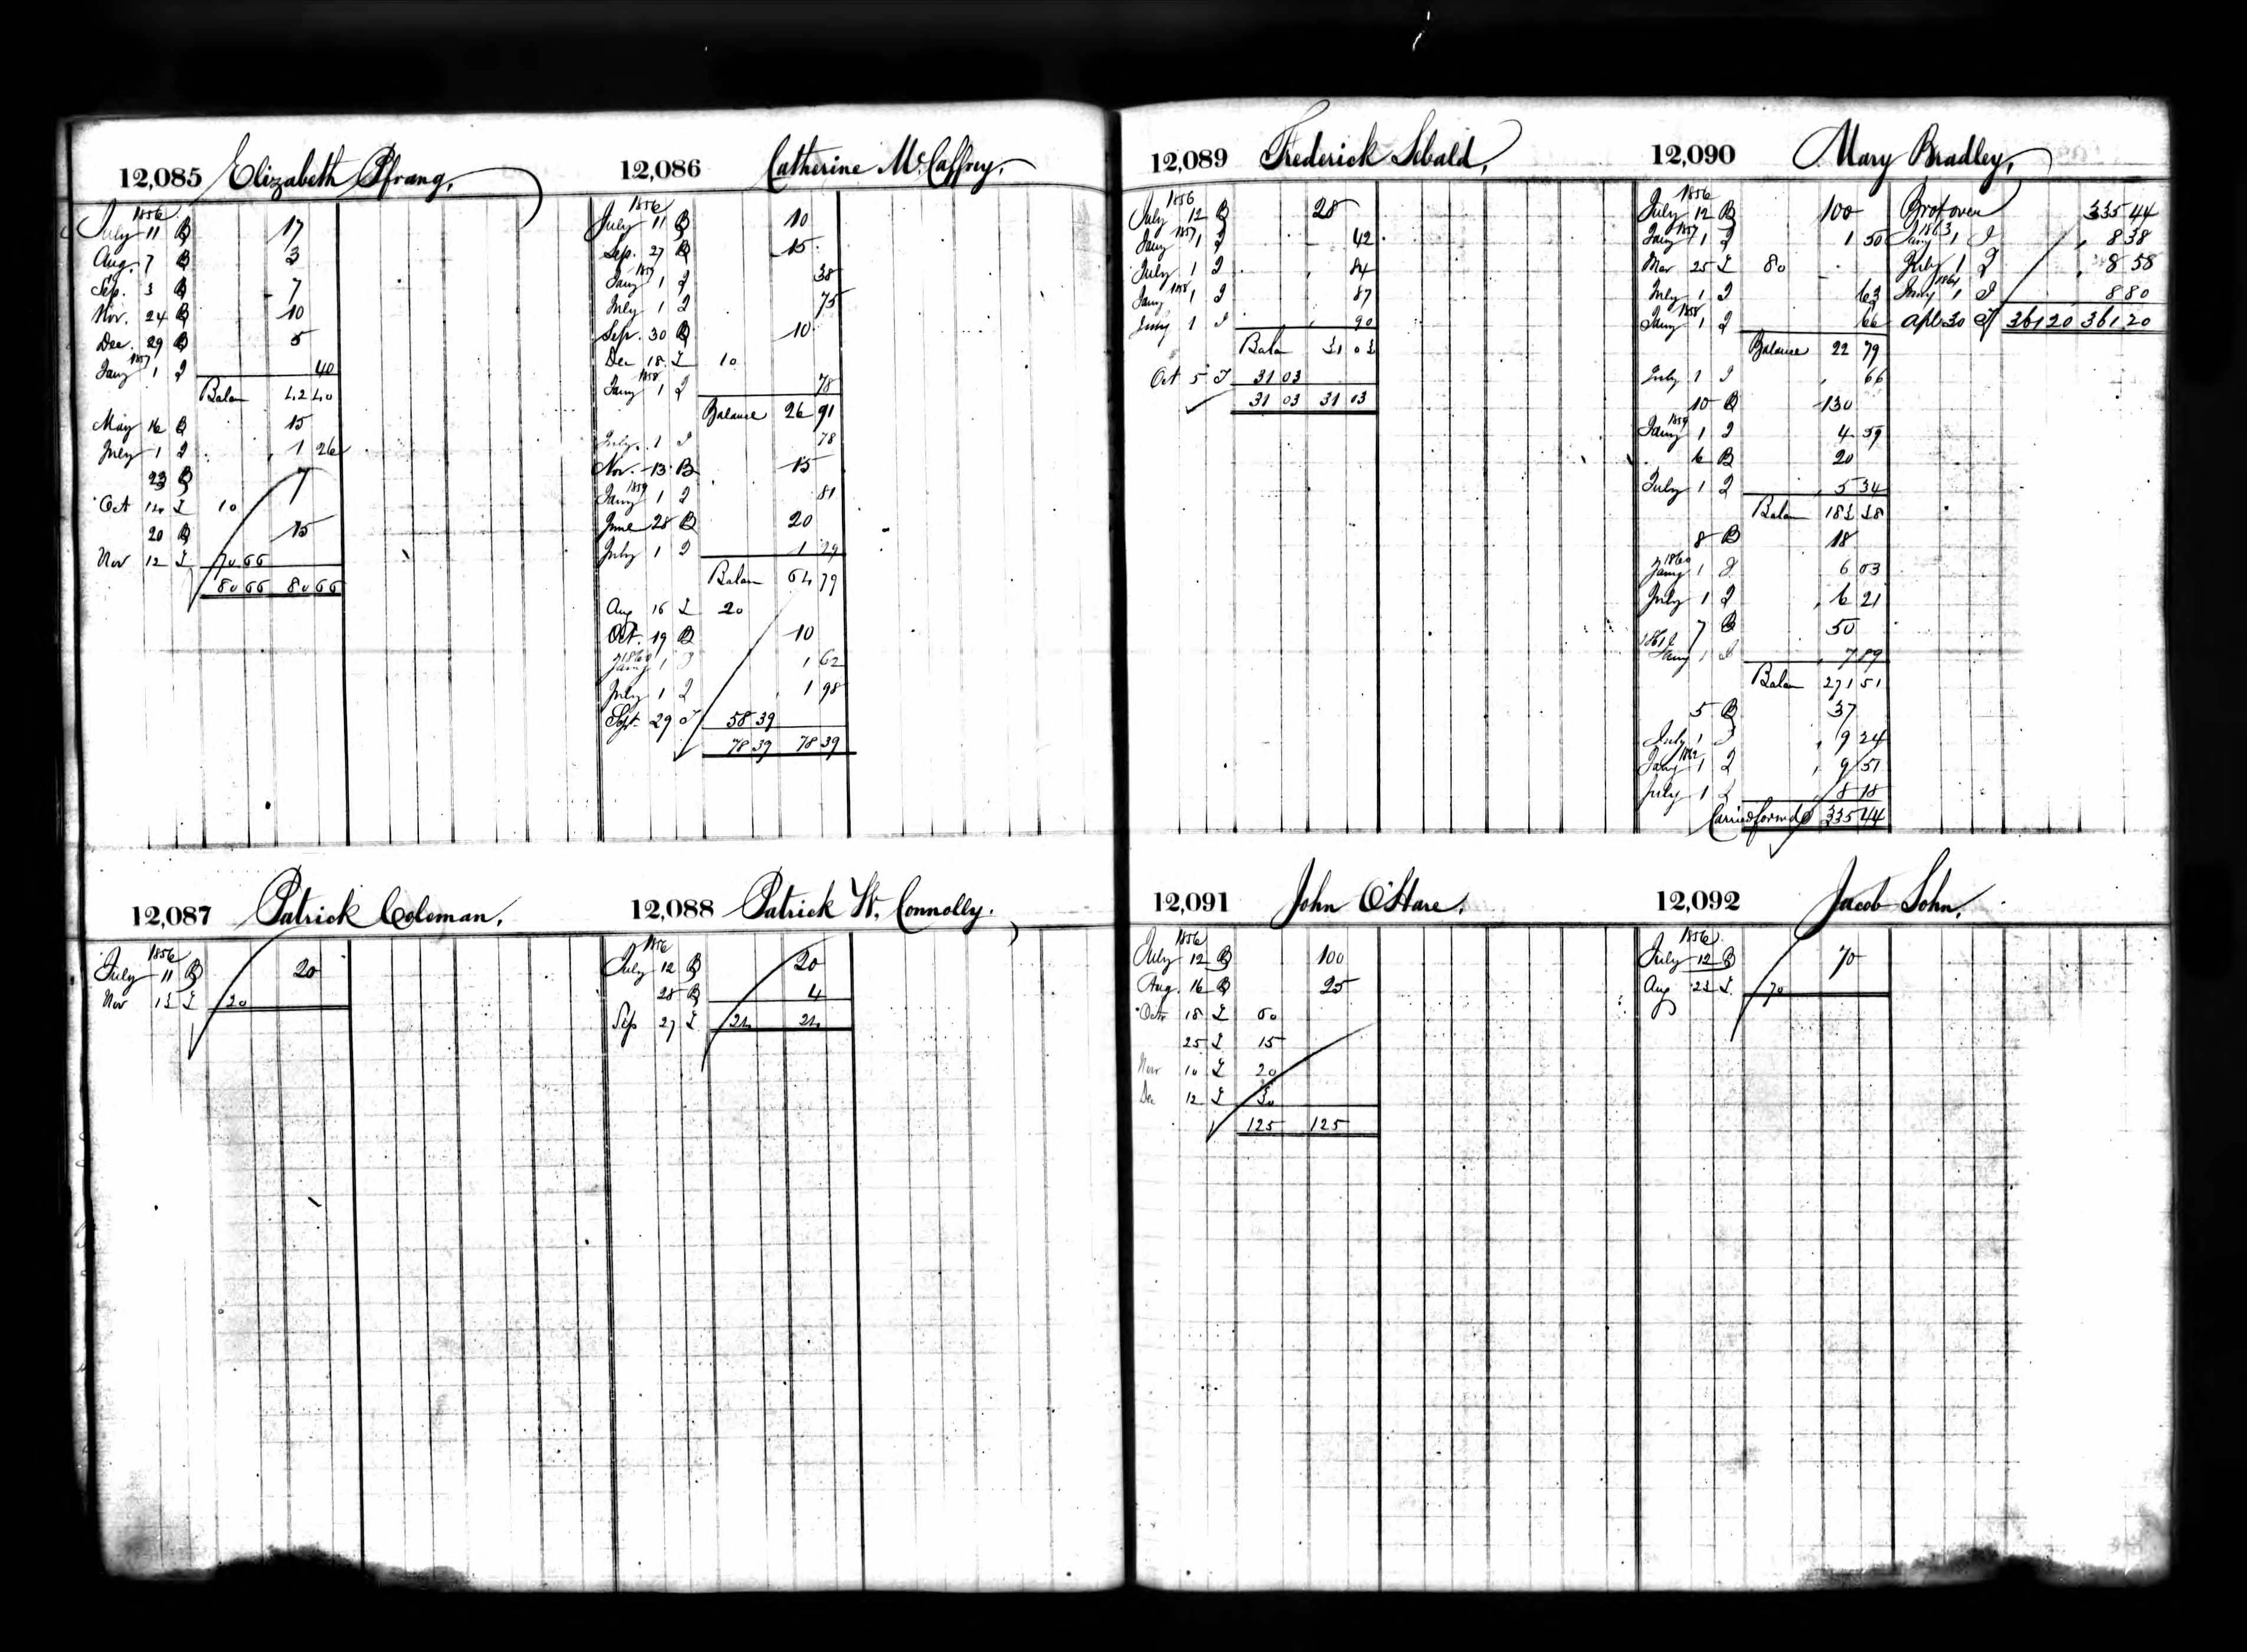 12,085 Elizabeth Pfrang,
1856
July 11 B 17
Aug. 7 B 3
Sep. 3 B 7
Nov. 24 B 10
Dec. 29 B 5
1857
Jany 1 I 40
Balan 42 40
May 16 B 15
July 1 I 1 26
23 B 7
Oct 14 L 10
20 B 15
Nov 12 L 70 66
80 66 80 66
12,086 Catherine McCaffrey,
1856
July 11 B 10
Sep. 27 B 15
1857
Jany 1 I 38
July 1 I 75
Sep. 30 B 10
Dec 18 L 10
1858
Jany 1 I 78
Balance 26 91
July 1 I 78
Nov. 13 B 15
1859
Jany 1 I 81
June 28 B 20
July 1 I 1 29
Balan 64 79
Aug 16 L 20
Oct. 19 B 10
1860
Jany 1 I 1 62
July 1 I 1 98
Sept. 29 T 58 39
78 39 78 39
12,087 Patrick Coleman,
1856
July 11 B 20
Nov 13 L 20
12,088 Patrick W. Connolly.
1856
July 12 B 20
28 B 4
Sep 27 L 24 24
12,089 Frederick Sebald,
1856
July 12 B 28
1857
Jany 1 I 42
July 1 I 84
1858
Jany 1 I 87
July 1 I 90
Balan 31 03
Oct 5 T 31 03
31 03 31 03
12,090 Mary Bradley,
1856
July 12 B 100
1857
Jany 1 I 1 50
Mar 25 L 80
July 1 I 63
1858
Jany 1 I 66
Balance 22 79
July 1 I 66
10 B 130
1859
Jany 1 I 4 59
6 B 20
July 1 I 5 34
Balan 183 38
8 B 18
1860
Jany 1 I 6 03
July 1 I 6 21
7 B 50
1861
Jany 1 I 7 89
Balan 271 51
5 B 37
July 1 I 9 24
1862
Jany 1 I 9 51
July 1 I 8 18
Carried forwd 335 44
Brot over 335 44
1863
Jany 1 I 8 38
July 1 I 8 58
1864
Jany 1 I 8 80
Apl 30 T 361 20 361 20
12,091 John O'Hare.
1856
July 12 B 100
Aug. 16 B 25
Octr 18 L 60
25 L 15
Nov 10 L 20
Dec 12 L 30
125 125
12,092 Jacob Sohn,
1856
July 12 B 70
Aug 23 L 70